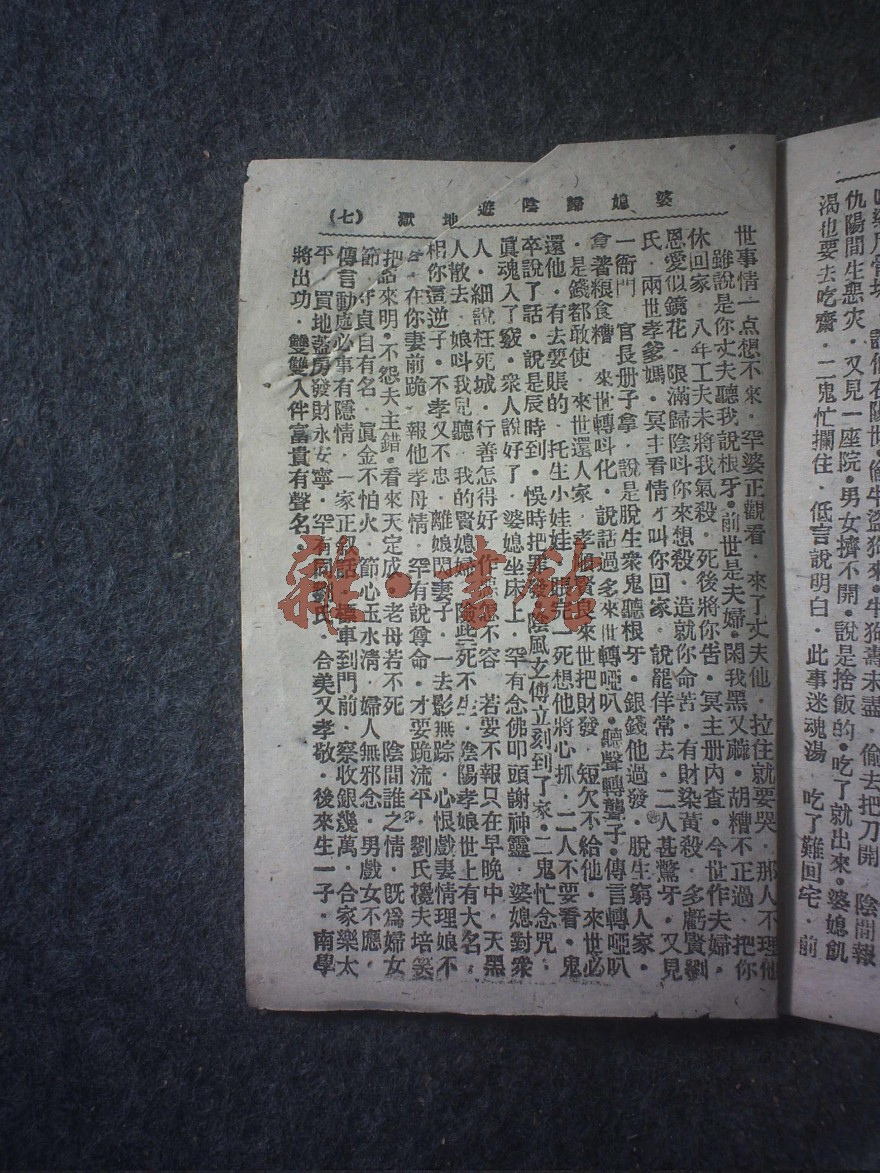 渴也要去吃齋．二鬼忙攔住．低言說明白．此事迷魂湯．吃了難回宅．前
仇陽間生惡灾．又見一座院．男女擠不開．說是捨飯的．吃了就出來．婆媳飢
婆媳歸陰遊地獄
（七）
世事情一点想不來．罕婆正觀看．來了丈夫他．拉住就要哭．那人不理他
雖說是你丈夫聽我說根牙．前世是夫婦．閑我黑又蔴．胡糟不正過．把你
休回家．八年工夫未將我氣殺．死後將你告．冥主册內查．今世作夫婦．
恩愛似鏡花．限滿歸陰叫你來想殺．造就你命苦．有財染黃殺．多虧賢劉
氏．兩世孝爹媽．冥主看情才叫你回家．說罷佯常去．二人甚驚牙．又見
一衙門．官長册子拿．說是脫生衆鬼聽根牙．銀錢他過發．脫生窮人家．
拿著粮食糟．來世轉叫化．說話過多來世轉啞叭．聽聲轉聾子．傳言轉啞叭
．是錢都敢使．來世還人家．孝順賢良來世把財發．短欠不給他．來世必
還他．有去要賬的．托生小娃娃．賬完一死想他將心抓．二人不要看．鬼
卒說了話．說是辰時到．悞時把罪發．陰風立刻到了家．二鬼忙念咒．
眞魂入了竅．衆人說好了．婆媳坐床上．罕有念佛叩頭謝神靈．婆媳對衆
人．細說枉死城．行善怎得好．作惡不容．若要不報只在早晚中．天黑
人散去．娘叫我兒聽．我的賢媳婦．險些死不生．陰陽孝娘世上有大名．
相你這逆子．不孝又不忠．離娘閃妻子．一去影無踪．心恨戲妻情理娘不
．在你妻前跪．報他孝母情．罕有說尊命．才要跪流平．劉氏攙夫培
把話來明．不怨夫主錯．看來天定成．老母若不死．陰間誰之情．既爲婦女
節．守貞自有名．眞金不怕火．節心玉水清．婦人無邪念．男戲女不應．
傳言動處必事有隱情．一家正叙話．車到門前．察收銀幾萬．合家樂太
平．買地蓋房發財永安寧．罕有同劉氏．合美又孝敬．後來生一子．南學
將出功．雙雙入伴富貴有聲名．
雜·書館